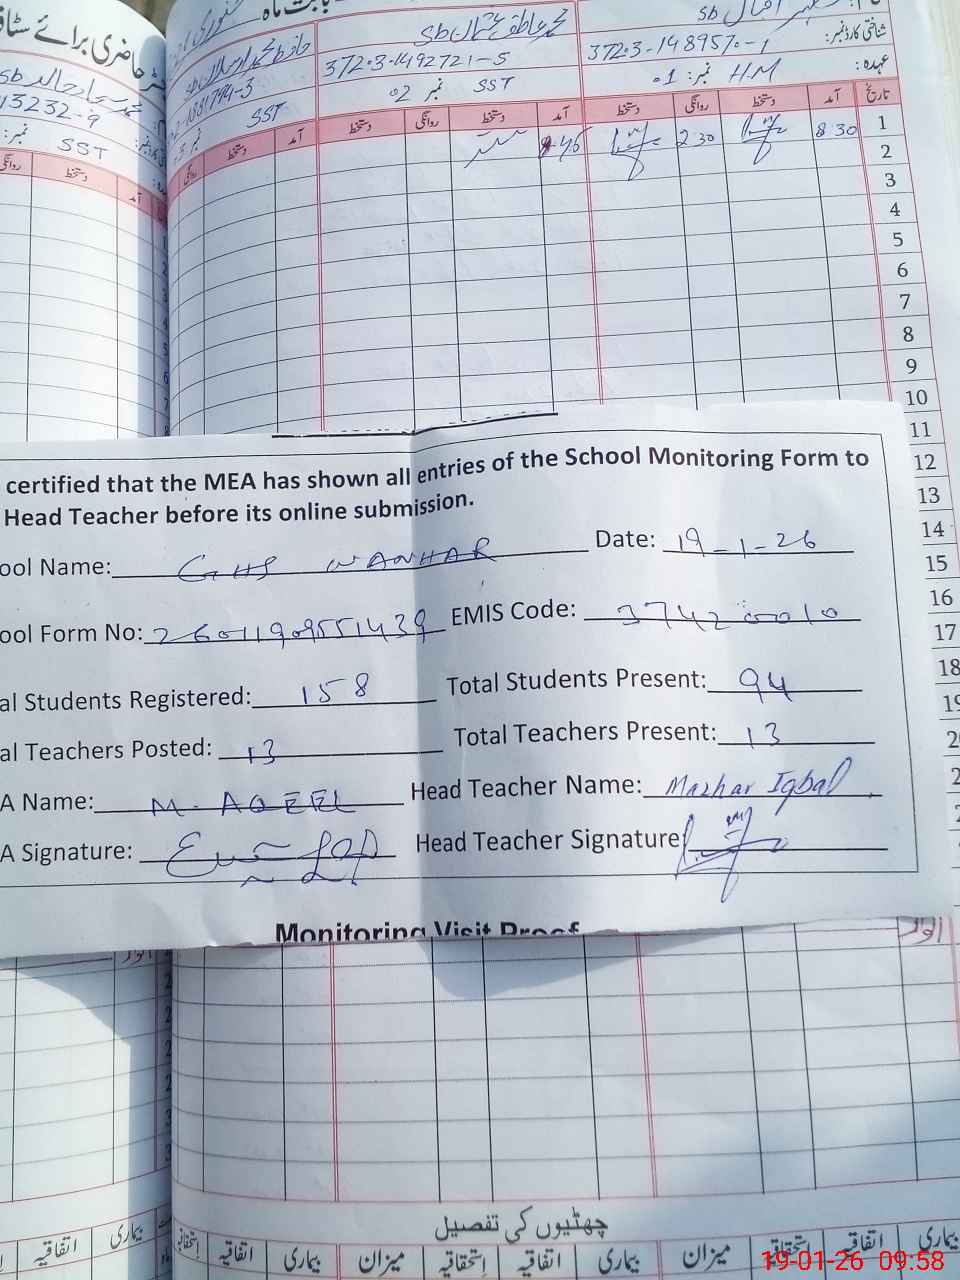 حاضری برائے سٹاف
بابت ماہ جنوری
اقبال sb
شناختی کارڈ نمبر: 37203-1489570-1
عہدہ: HM نمبر: 01
محمد عاطف sb
37203-1492721-5
SST نمبر 02
حافظ محمد
SST
sb
13232-9
SST نمبر:
تاریخ آمد دستخط روانگی دستخط آمد دستخط روانگی دستخط آمد دستخط روانگی
آمد دستخط
1 8 30 2 30 8-45
2
3
4
5
6
7
8
9
10
11
12
13
14
15
16
17
18
certified that the MEA has shown all entries of the School Monitoring Form to
Head Teacher before its online submission.
ool Name: GHS WANHAR Date: 19-1-26
ool Form No: 26011909551439 EMIS Code: 37420010
al Students Registered: 158 Total Students Present: 94
al Teachers Posted: 13 Total Teachers Present: 13
A Name: M. AQEEL Head Teacher Name: Mazhar Iqbal
A Signature: Head Teacher Signature
Monitoring Visit Proof
اتوار
چھٹیوں کی تفصیل
بیماری اتفاقیہ استحقاقیہ میزان بیماری اتفاقیہ استحقاقیہ میزان بیماری اتفاقیہ استحقاقیہ
بیماری اتفاقیہ
19-01-26 09:58